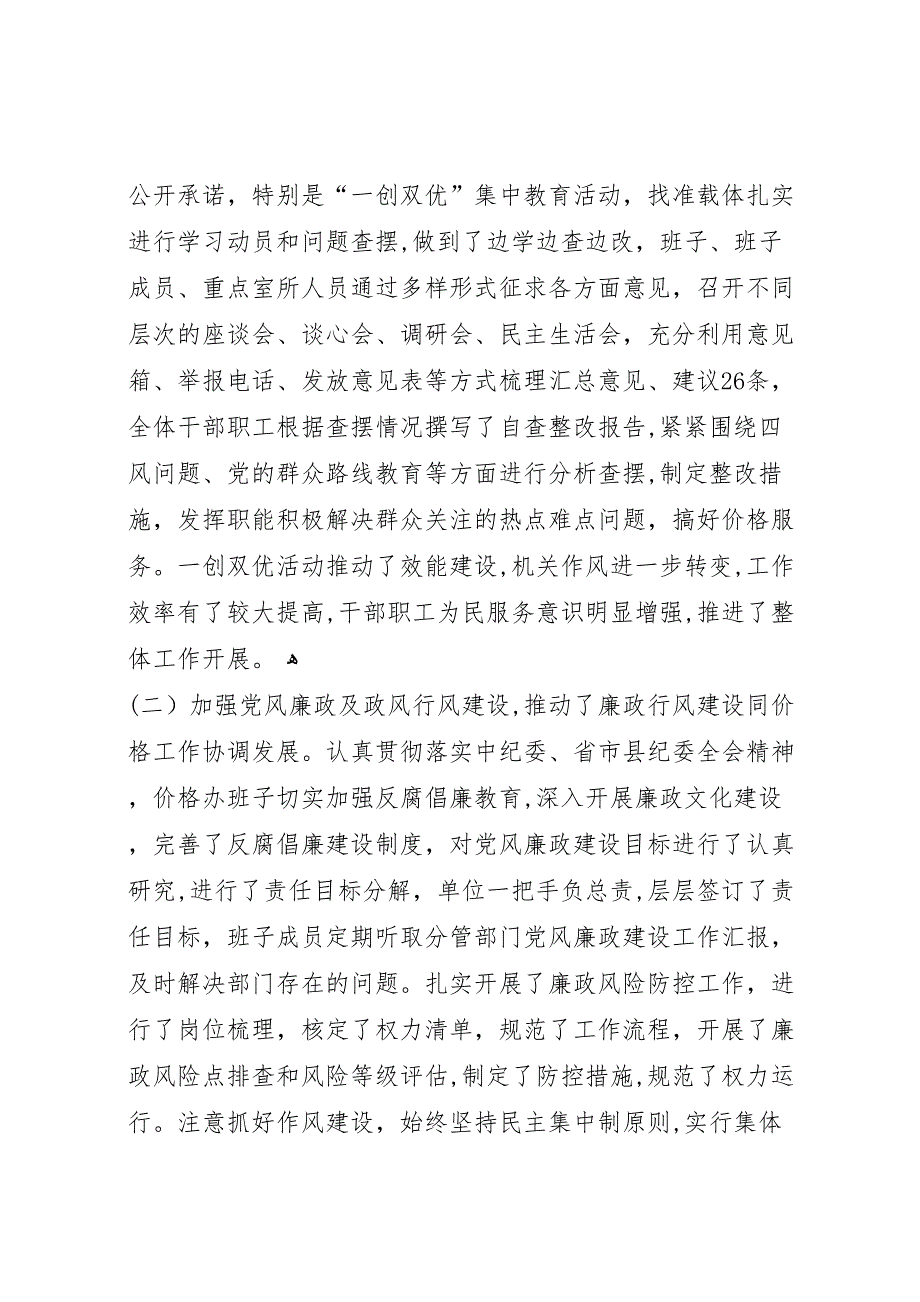 公开承诺，特别是“一创双优”集中教育活动，找准载体扎实
进行学习动员和问题查摆,做到了边学边查边改，班子、班子
成员、重点室所人员通过多样形式征求各方面意见，召开不同
层次的座谈会、谈心会、调研会、民主生活会，充分利用意见
箱、举报电话、发放意见表等方式梳理汇总意见、建议26条，
全体干部职工根据查摆情况撰写了自查整改报告,紧紧围绕四
风问题、党的群众路线教育等方面进行分析查摆,制定整改措
施，发挥职能积极解决群众关注的热点难点问题，搞好价格服
务。一创双优活动推动了效能建设,机关作风进一步转变,工作
效率有了较大提高,干部职工为民服务意识明显增强,推进了整
体工作开展。 ﻫ
(二）加强党风廉政及政风行风建设,推动了廉政行风建设同价
格工作协调发展。认真贯彻落实中纪委、省市县纪委全会精神
，价格办班子切实加强反腐倡廉教育,深入开展廉政文化建设
，完善了反腐倡廉建设制度，对党风廉政建设目标进行了认真
研究,进行了责任目标分解，单位一把手负总责,层层签订了责
任目标，班子成员定期听取分管部门党风廉政建设工作汇报，
及时解决部门存在的问题。扎实开展了廉政风险防控工作，进
行了岗位梳理，核定了权力清单，规范了工作流程，开展了廉
政风险点排查和风险等级评估,制定了防控措施,规范了权力运
行。注意抓好作风建设，始终坚持民主集中制原则,实行集体